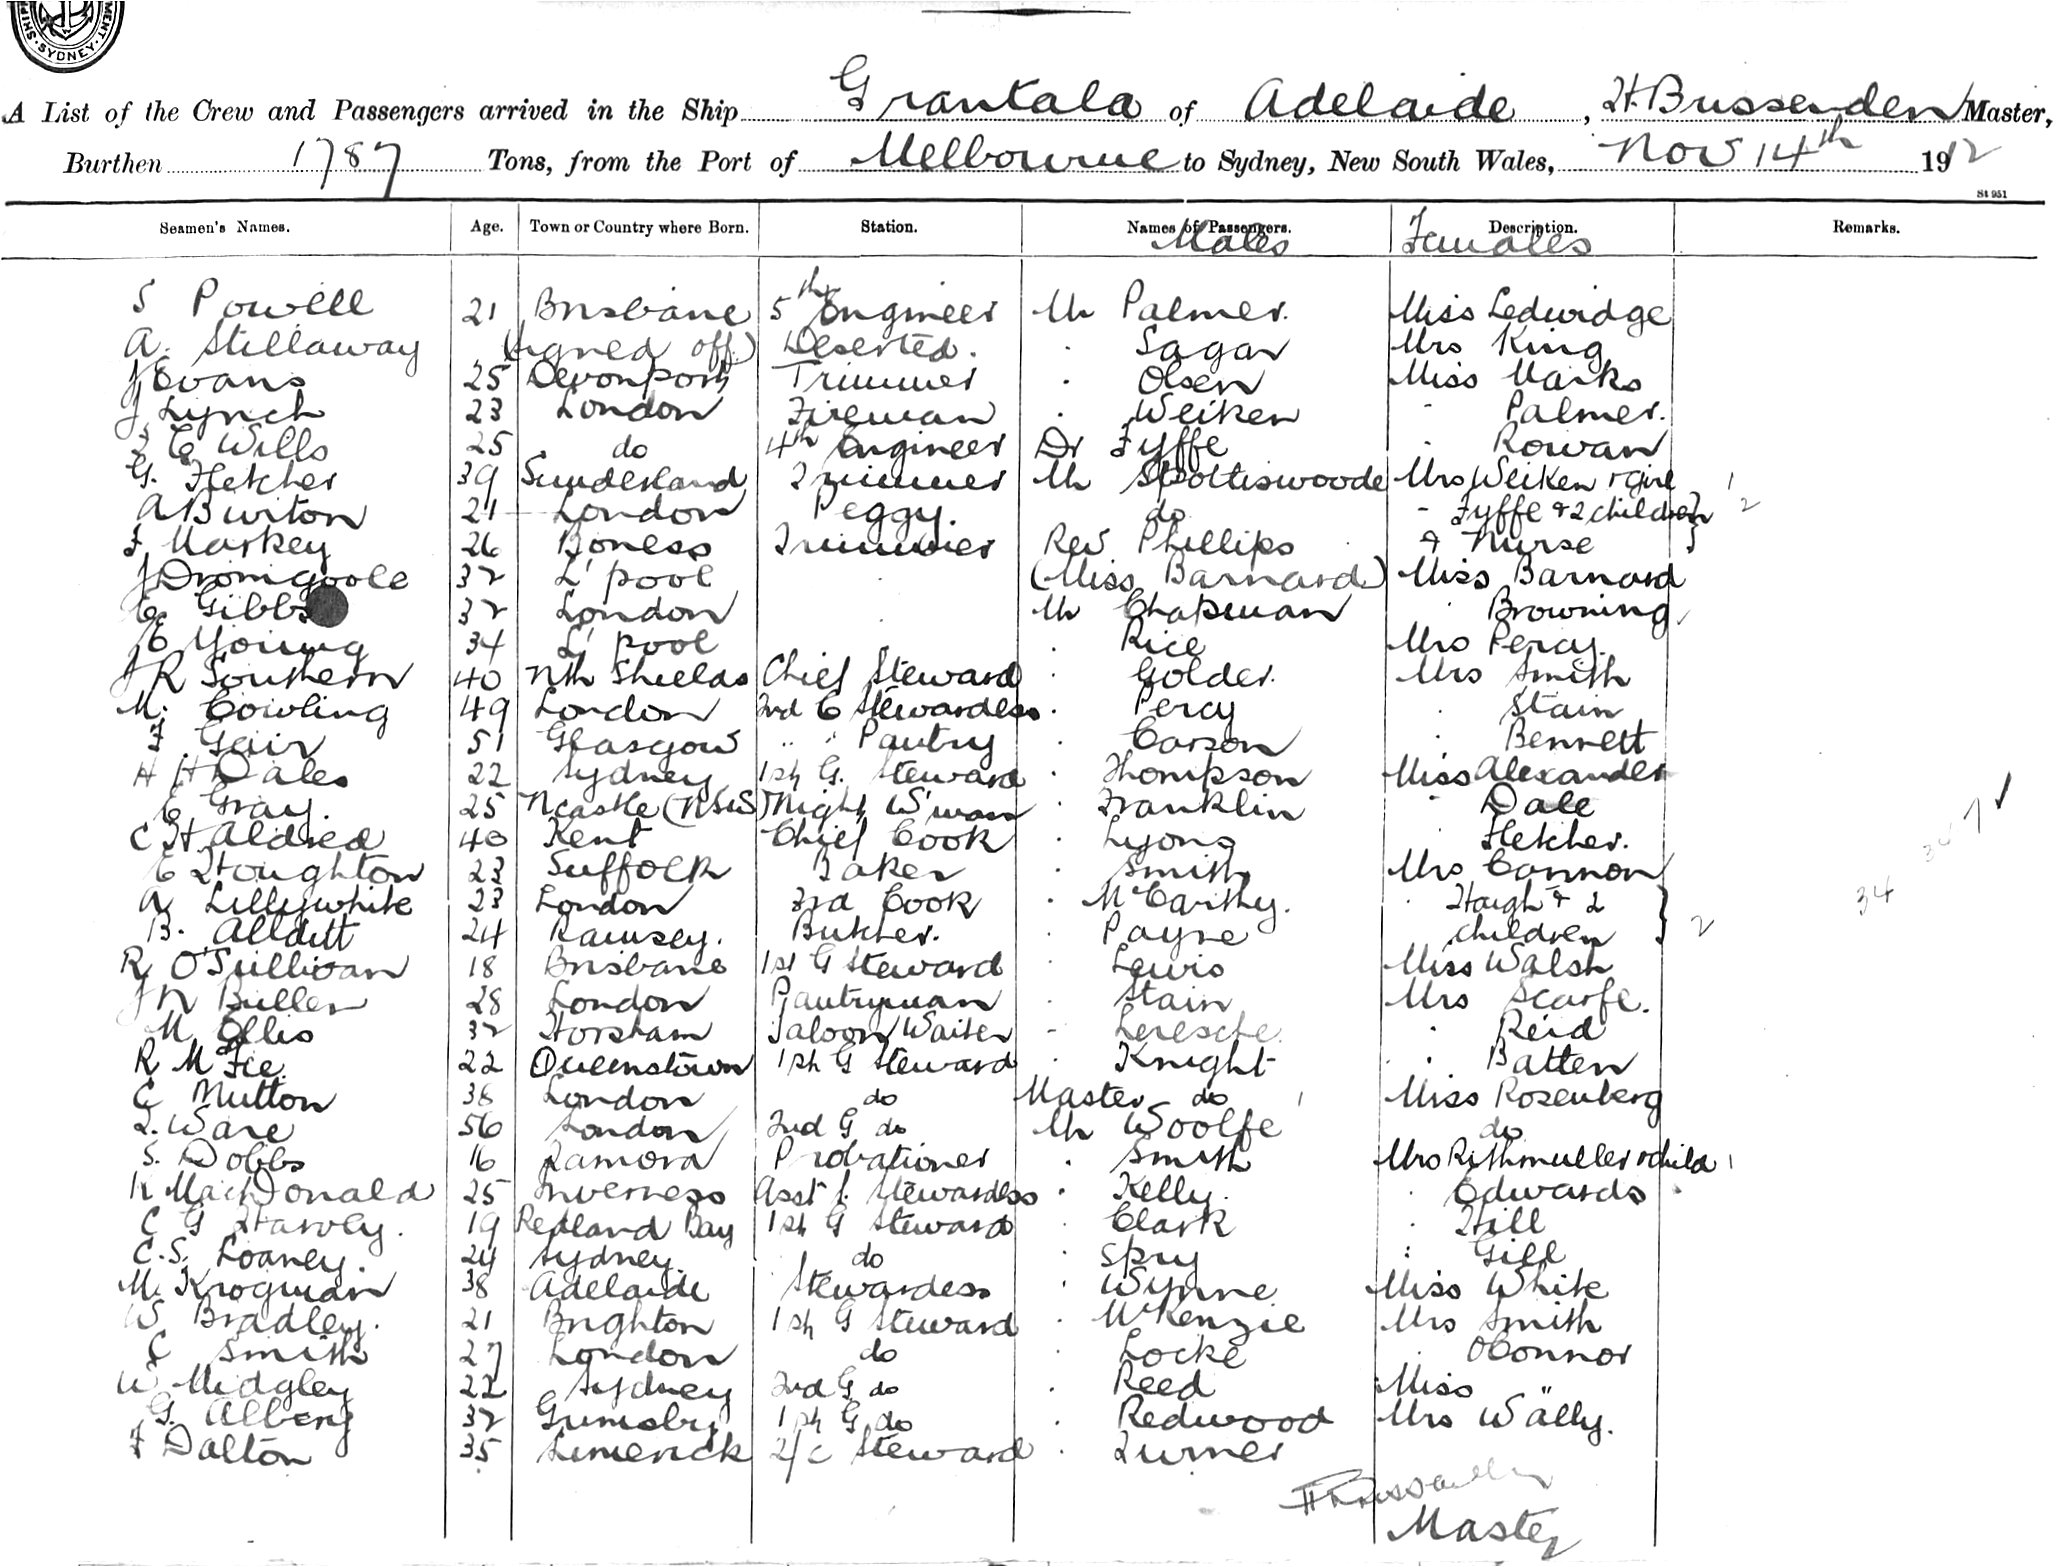 SYDNEY
A List of the Crew and Passengers arrived in the Ship Grantala of Adelaide, H. Bussenden Master,
Burthen 1787 Tons, from the Port of Melbourne to Sydney, New South Wales, Nov 14th 1912
St 951
Seamen's Names. Age. Town or Country where Born. Station. Names of Passengers. Description. Remarks.
Males Females
S Powell 21 Brisbane 5th Engineer Mr Palmer. Miss Ledwidge
A. Stillaway (signed off) Deserted. Sagar Mrs King
J Evans 25 Devonport Trimmer Olsen Miss Marks
J Lynch 23 London Fireman Weiken Palmer.
F E Wills 25 do 4th Engineer Dr Fyffe Rowan
G. Fletcher 39 Sunderland Trimmer Mr Spottiswoode Mrs Weiken + girl 1
A Burton 21 London Peggy. do - Fyffe + 2 children 2
F Markey 26 Boness Trimmer Rev Phillips & Nurse
J Dromgoole 32 L'pool (Miss Barnard) Miss Barnard
C. Gibbs 32 London Mr Chapman Browning
E Young 34 L'pool Rice Mrs Percy.
J R Southern 40 Nth Shields Chief Steward Golder. Mrs Smith
M. Cowling 49 London 2nd C Stewardess Percy Stain
F. Gair 51 Glasgow " " Pantry Carson Bennett
H H Dales 22 Sydney 1st G. Steward Thompson Miss Alexander
E Gray. 25 Ncastle (NSW) Night W'man Franklin Dale
C H Aldred 40 Kent Chief Cook Lyons Fletcher.
E Houghton 23 Suffolk Baker Smith Mrs Cannon
A Lillywhite 23 London 3rd Cook McCarthy. Haigh + 2
B. Allditt 24 Ramsey. Butcher. Payne children 2 34
R O'Sullivan 18 Brisbane 1st G Steward Lewis Miss Walsh
J N Buller 28 London Pantryman Stain Mrs Scarfe.
M Ellis 32 Horsham Saloon Waiter - Leresche. Reid
R McFee. 22 Queenstown 1st G Steward Knight Batten
C Mutton 38 London do Master do 1 Miss Rosenberg
L. Ware 56 London 2nd G do Mr Woolfe do
S. Dobbs 16 Zamora Probationer Smith Mrs Rithmuller + child 1
K MacDonald 25 Inverness Asst f. Stewardess Kelly. Edwards
C G Harvey. 19 Redland Bay 1st G Steward Clark Hill
C. S. Loaney. 24 Sydney. do Spry Gill
M. Krogman 38 Adelaide Stewardess Wynne Miss White
W Bradley. 21 Brighton 1st G Steward McKenzie Mrs Smith
C Smith 27 London do Locke OConnor
W Midgley 22 Sydney 2nd G. do Reed Miss "
G. Alberg 32 Grimsby 1st G. do Redwood Mrs Wally.
F Dalton 35 Limerick 2/c Steward Turner
Master